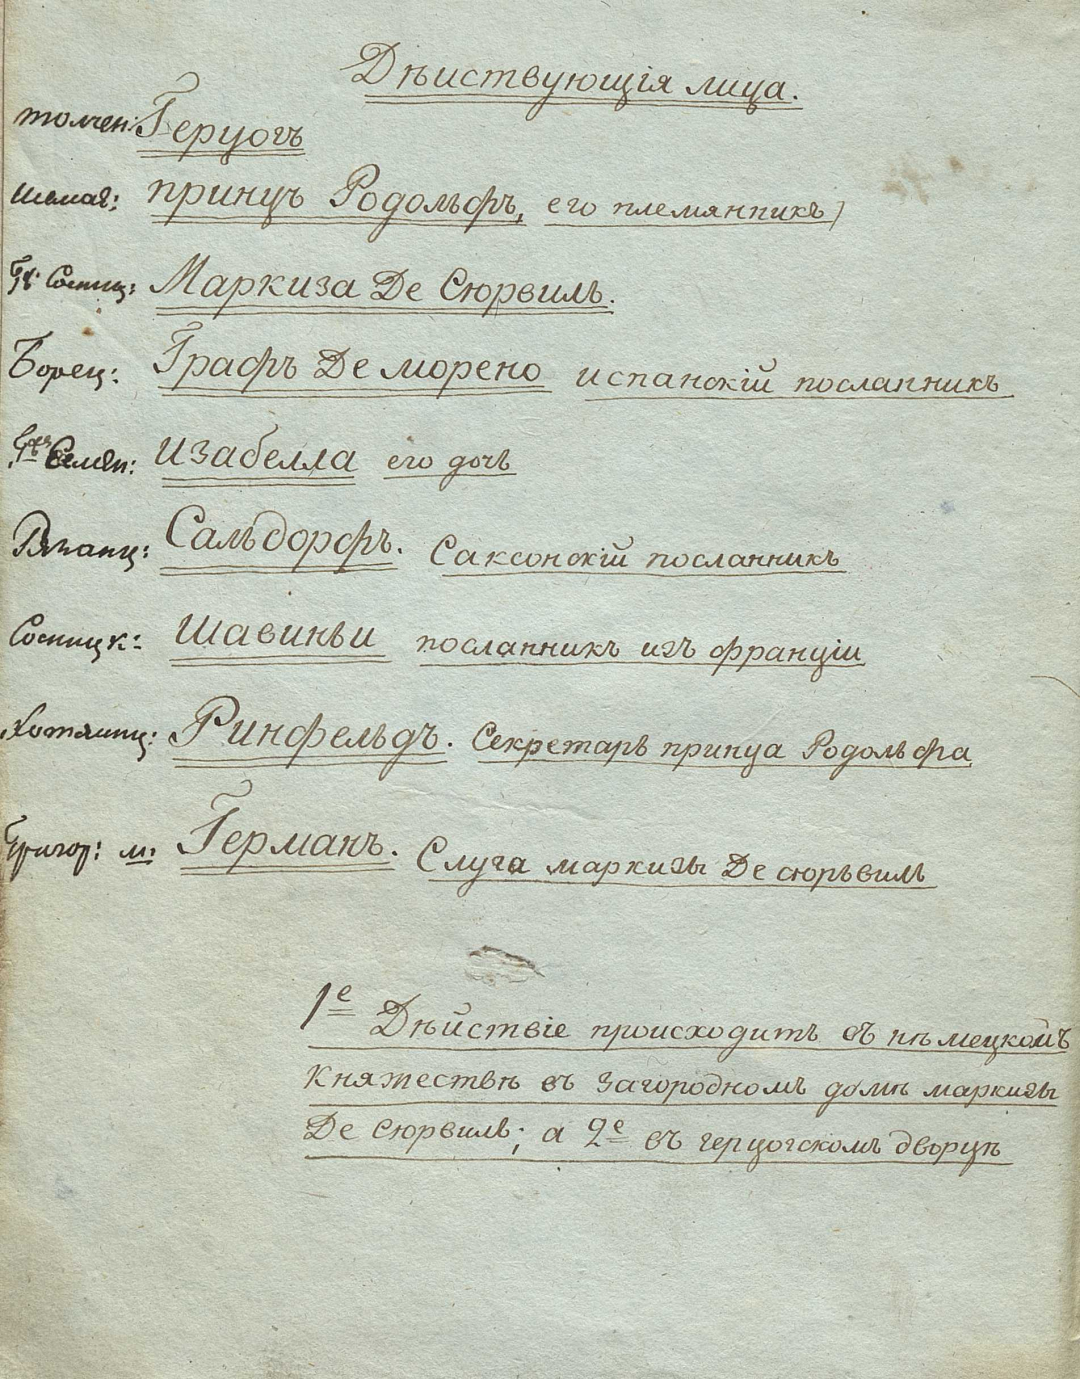 Дѣиствующія лица.
толчен: Герцогъ
шемая: принцъ Родольфъ, его племянникъ)
Гж: Сосниц: Маркиза Де Сюрвиль.
Борец: Графъ Де морено испанскій посланникъ
Семен: Изабелла его дочь
Рязанц: Сальдорфъ. Саксонскій посланникъ
Сосницк: Шавиньи посланникъ изъ франціи
Хотяинц: Ринфельдъ. Секретарь принца Родольфа
Григор: м: Германъ. Слуга маркизы Де сюрьвиль
1е Дѣйствіе происходитъ въ нѣмецкомъ
Княжествѣ въ загородномъ домѣ маркизы
Де Сюрвиль; а 2е въ герцогскомъ дворцѣ